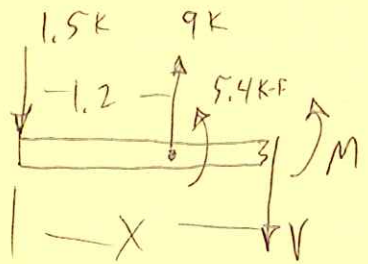 1.5K 9K
1.2
5.4K-F
M
X V